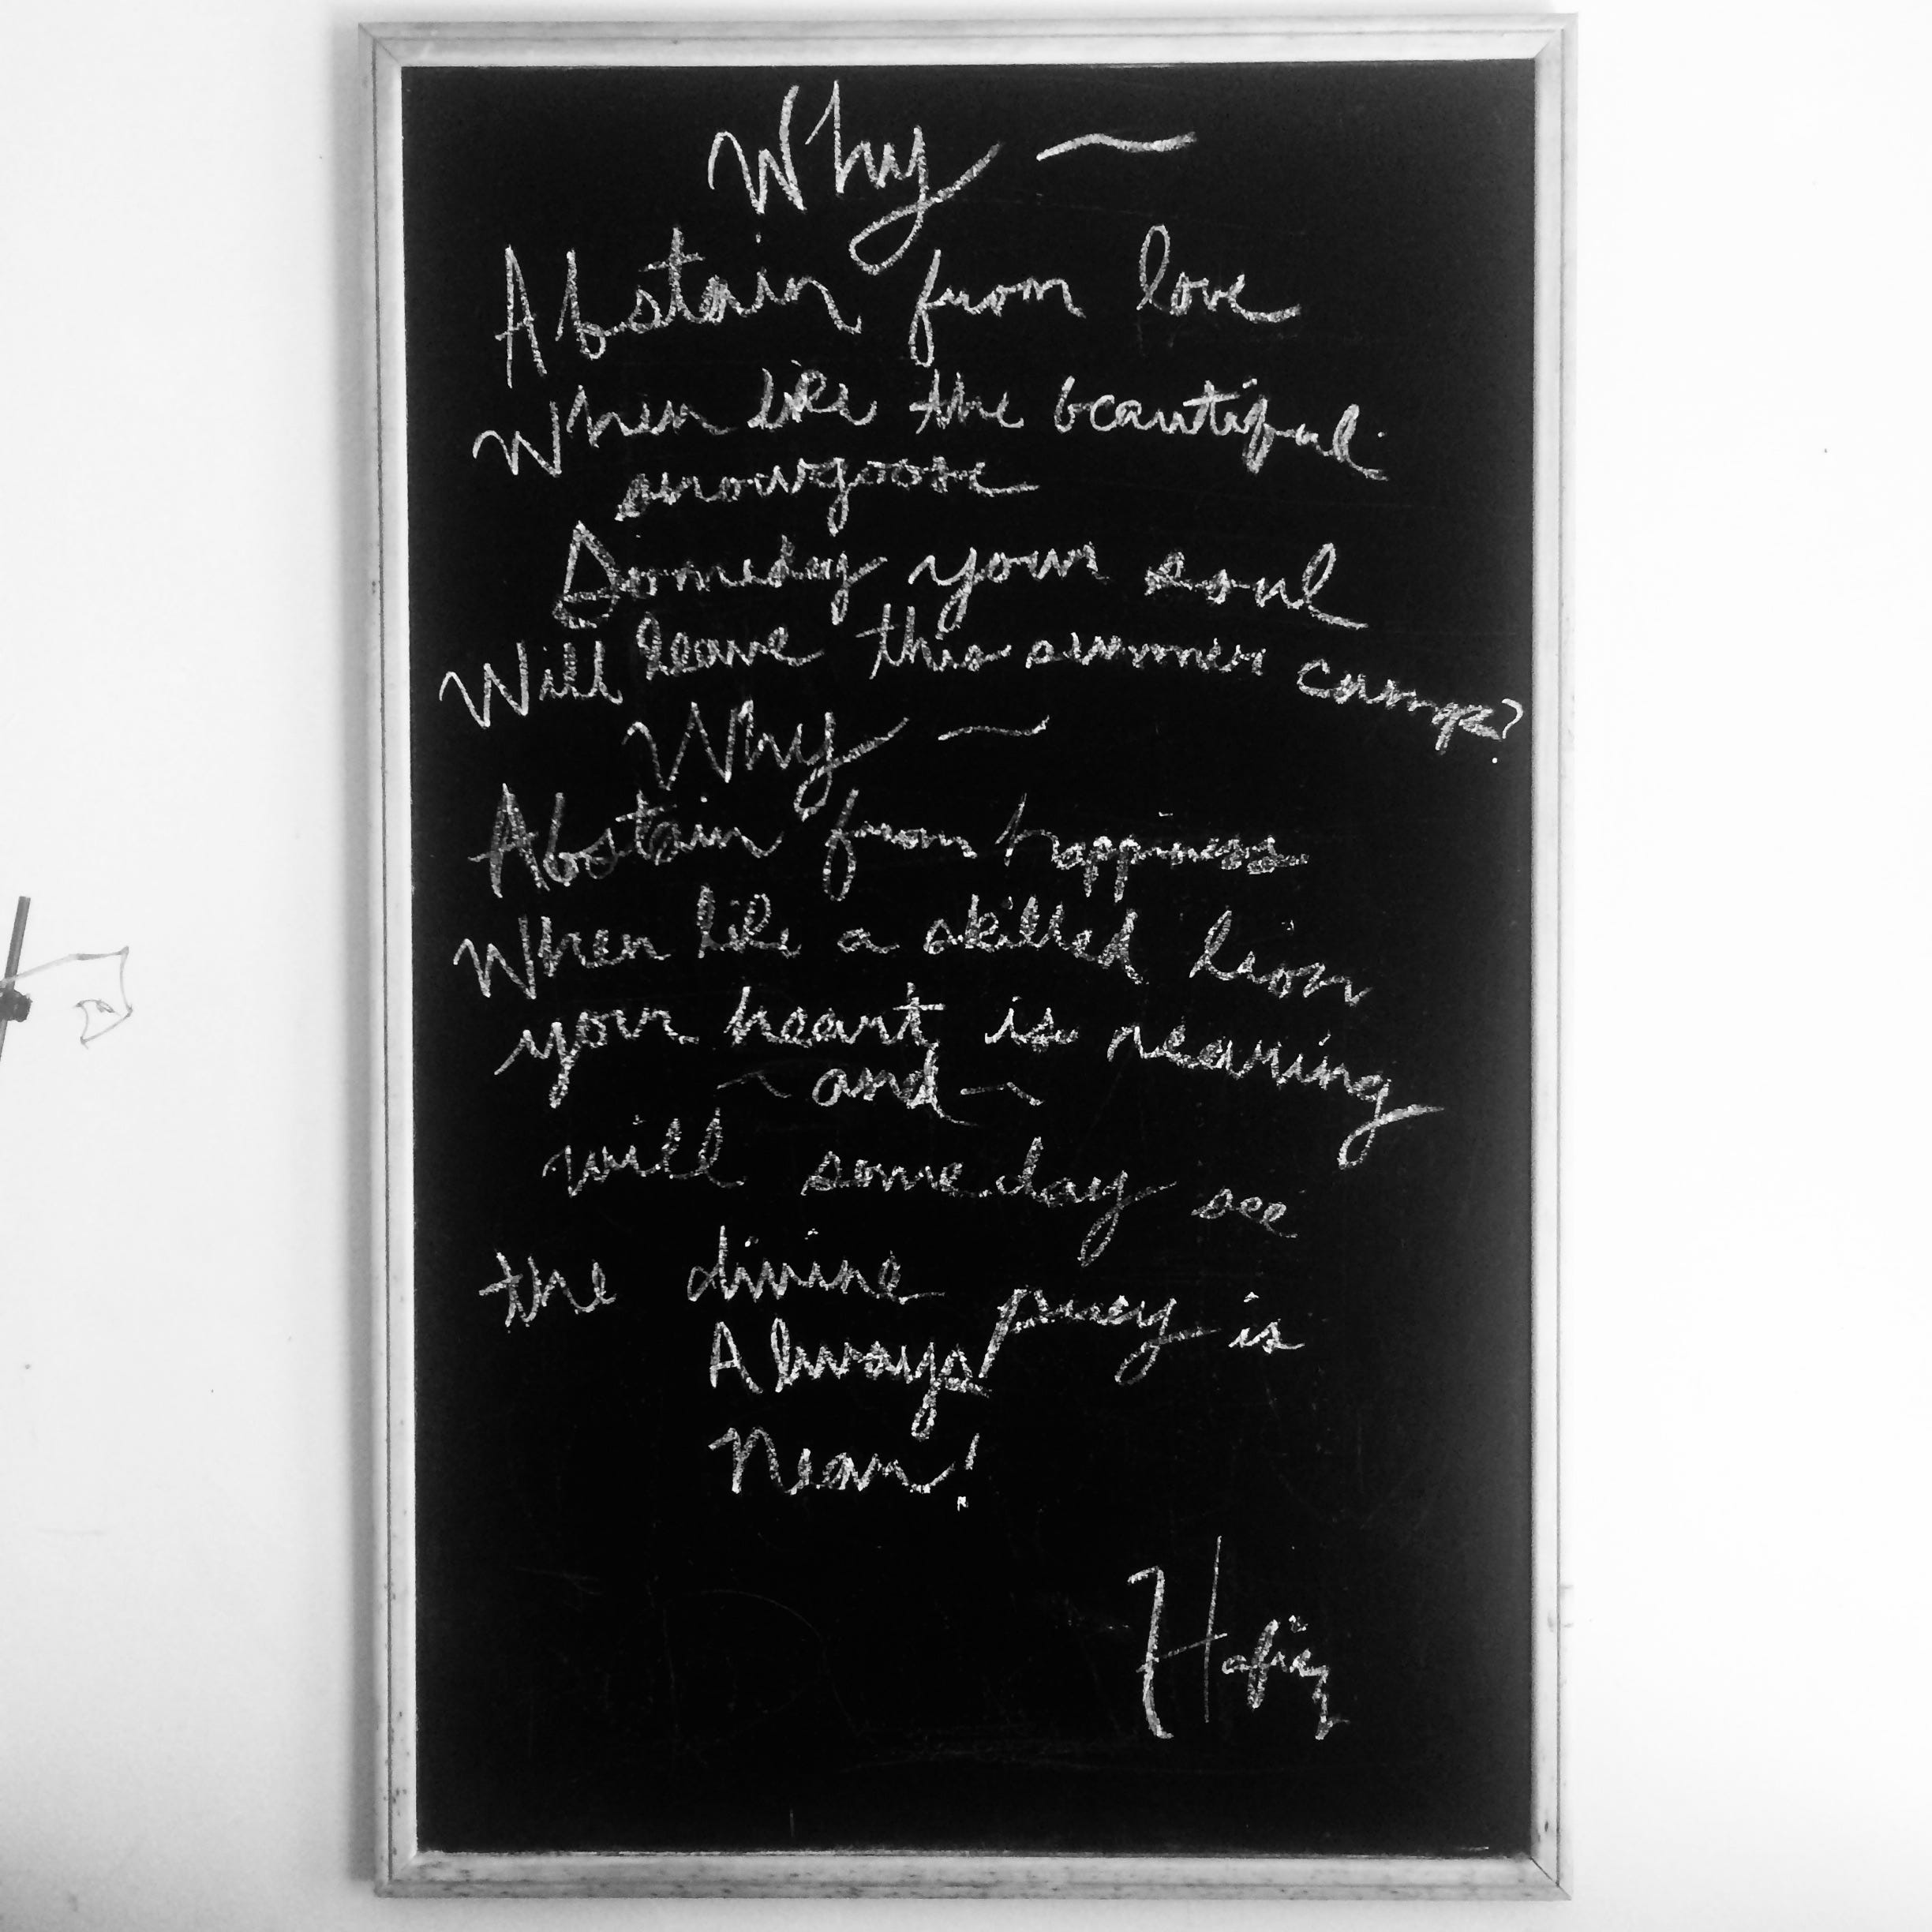 Why ~
Abstain from love
When like the beautiful
snowgoose
Someday your soul
Will leave this summer camp?
Why ~
Abstain from happiness
When like a skilled lion
your heart is nearing
~ and ~
will someday see
the divine prey is
Always
Near!
Hafiz